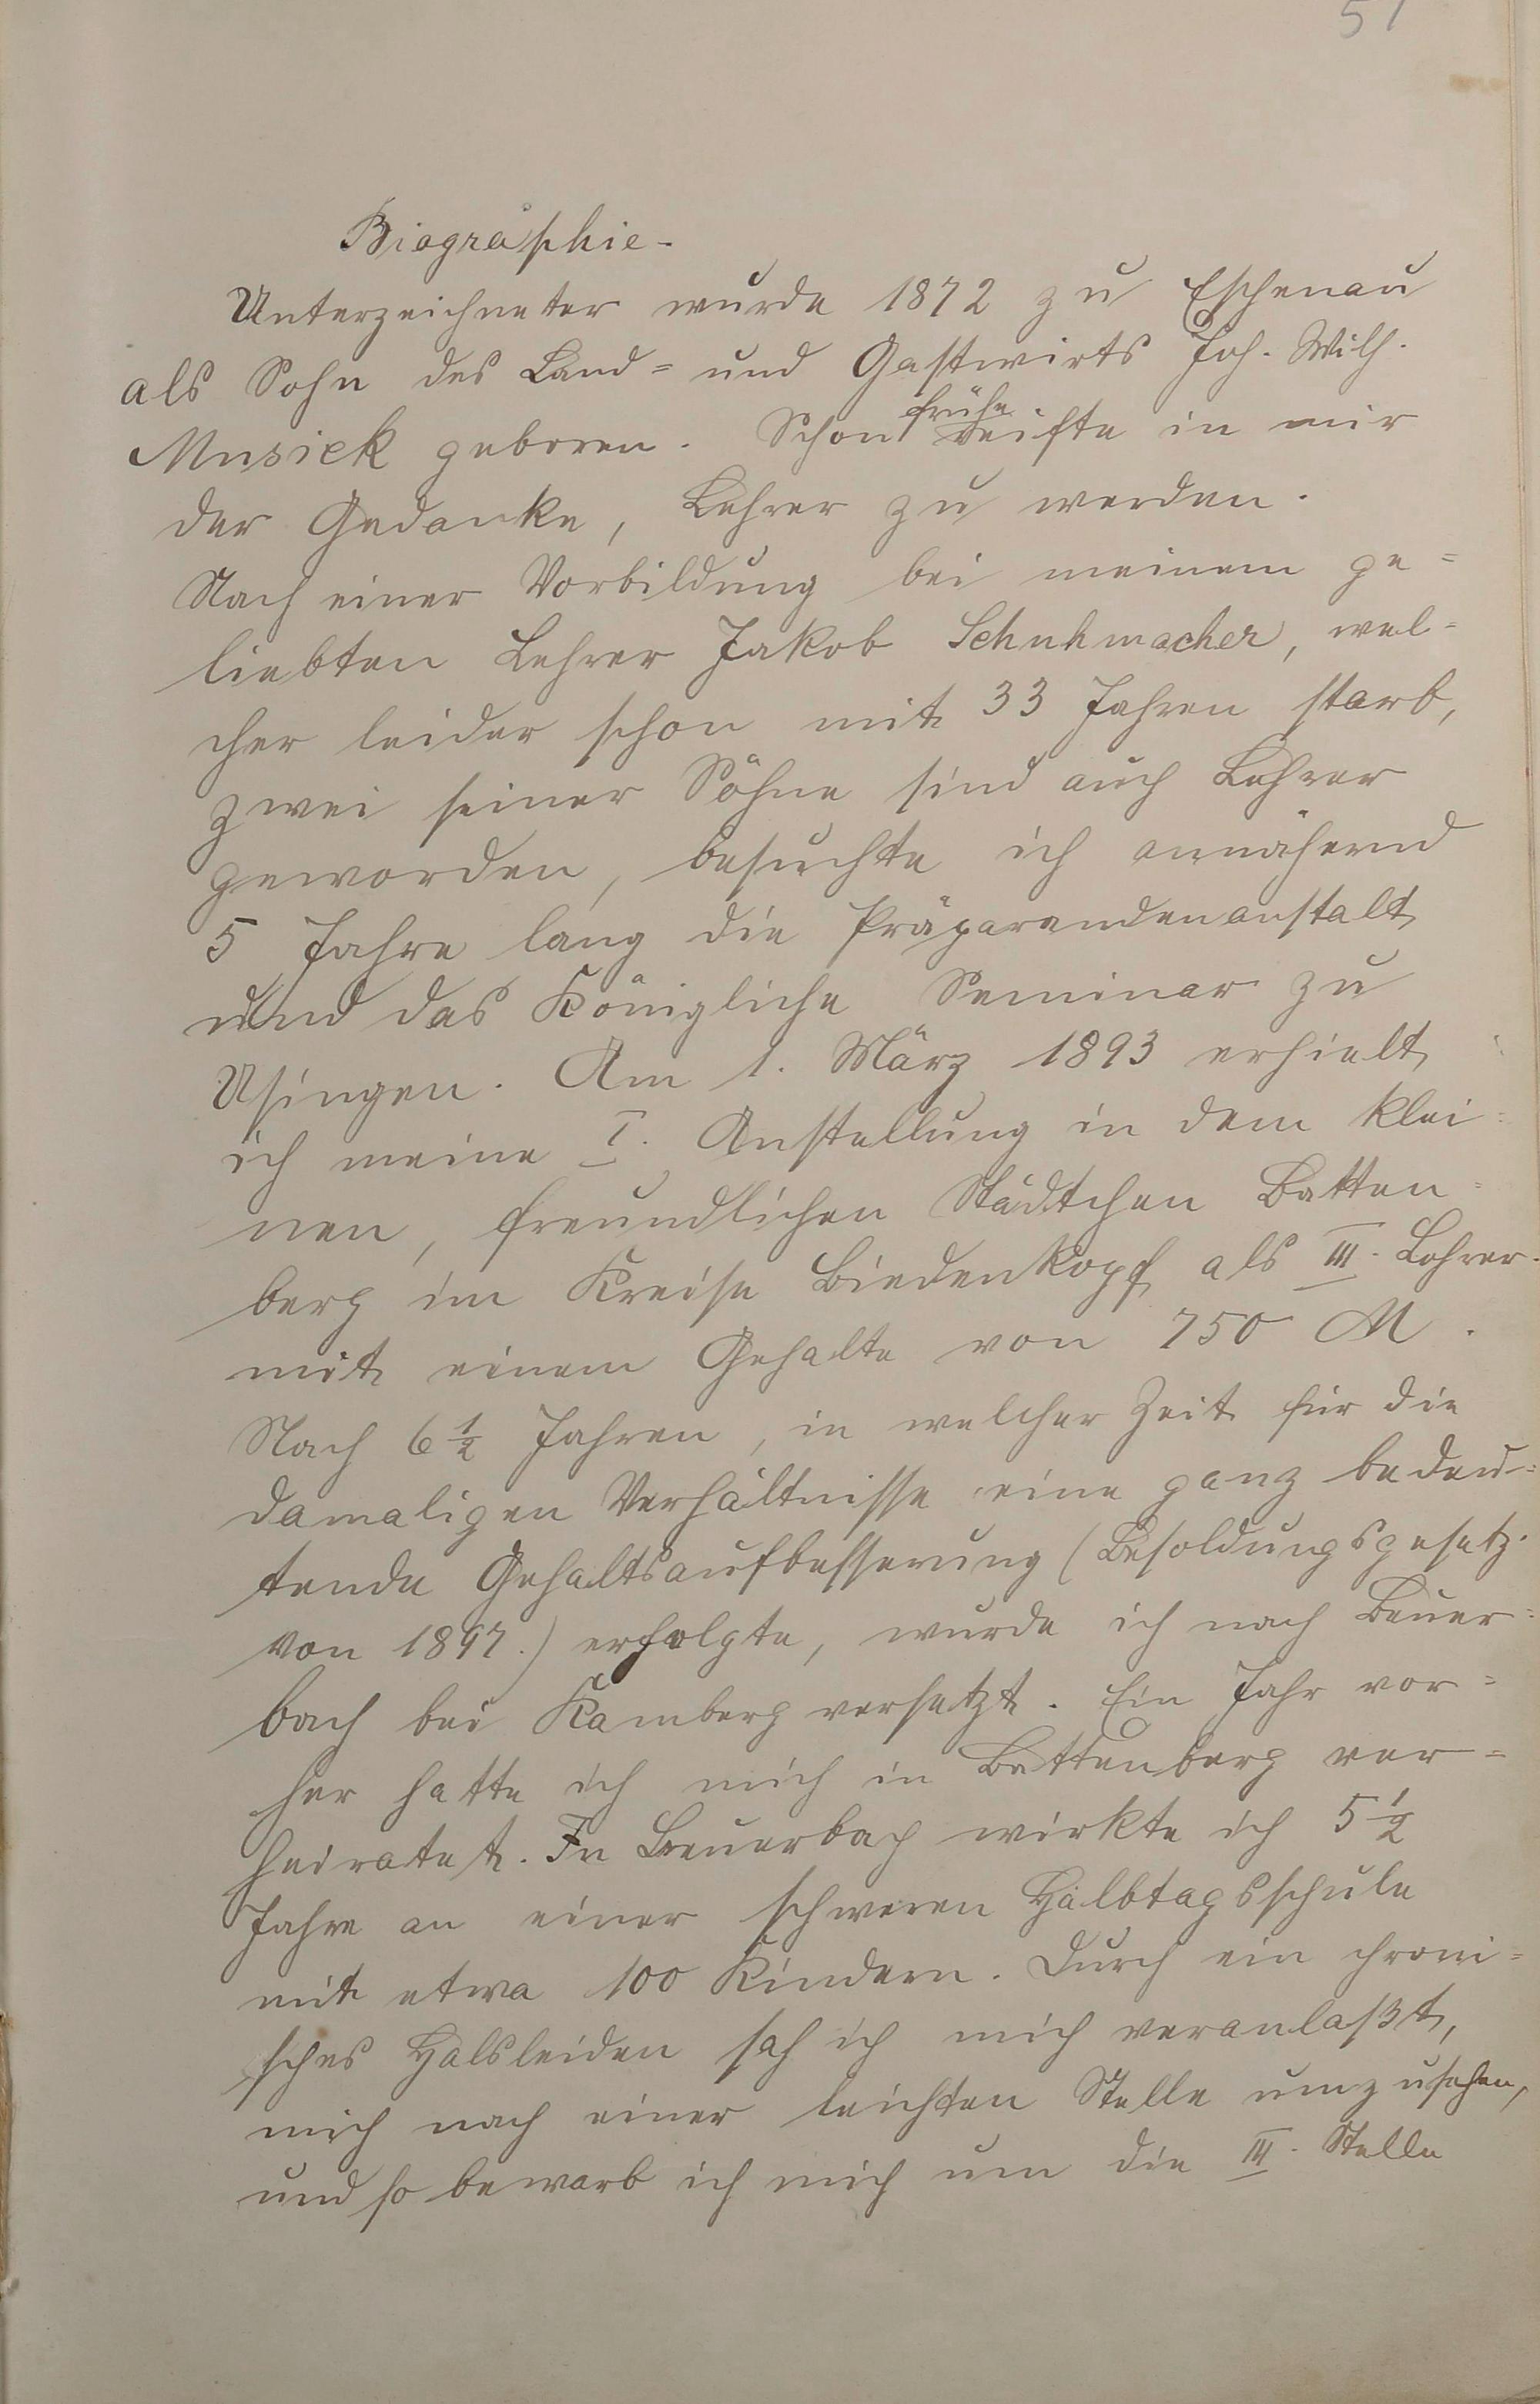 51
Biographie.
Unterzeichneter wurde 1872 zu Eschenau
als Sohn des Land= und Gastwirts Joh. Wilh.
Musiek geboren. Schon frühe reifte in mir
der Gedanke, Lehrer zu werden.
Nach einer Vorbildung bei meinem ge=
liebten Lehrer Jakob Schuhmacher, wel=
cher leider schon mit 33 Jahren starb,
zwei seiner Söhne sind auch Lehrer
geworden, besuchte ich annähernd
5 Jahre lang die Präparandenanstalt
und das Königliche Seminar zu
Usingen. Am 1. März 1893 erhielt
ich meine I. Anstellung in dem klei=
nen, freundlichen Städtchen Batten=
berg im Kreise Biedenkopf als III. Lehrer
mit einem Gehalte von 750 M.
Nach 6 1/2 Jahren, in welcher Zeit für die
damaligen Verhältnisse eine ganz bedeu=
tende Gehaltsaufbesserung (Besoldungsgesetz
von 1897.) erfolgte, wurde ich nach Beuer=
bach bei Kamberg versetzt. Ein Jahr vor=
her hatte ich mich in Battenberg ver=
heiratet. In Beuerbach wirkte ich 5 1/2
Jahre an einer schweren Halbtagsschule
mit etwa 100 Kindern. Durch ein chroni=
sches Halsleiden sah ich mich veranlaßt,
mich nach einer leichten Stelle umzusehen,
und so bewarb ich mich um die III. Stelle